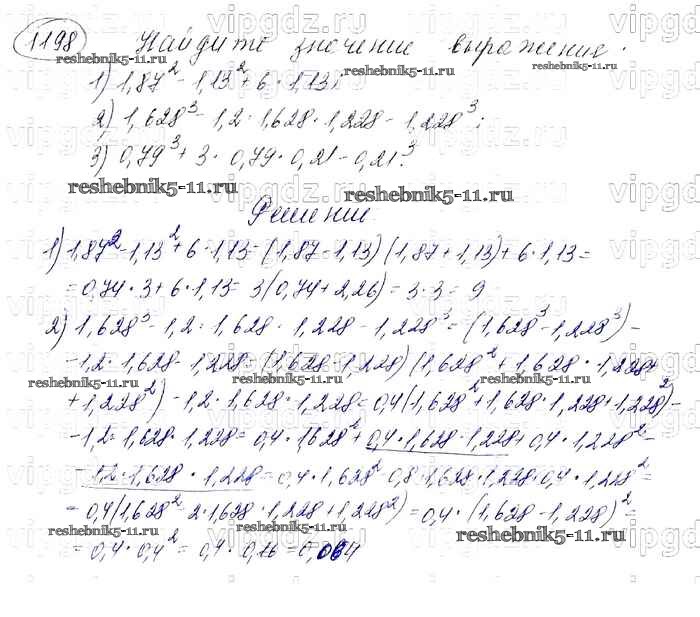 1198 Найдите значение выражения.
1) 1,87² - 1,13² + 6 · 1,13;
2) 1,628³ - 1,2 · 1,628 · 1,228 - 1,228³;
3) 0,79³ + 3 · 0,79 · 0,21 - 0,21³
reshebnik5-11.ru
Решение
1) 1,87² - 1,13² + 6 · 1,13 = (1,87 - 1,13)(1,87 + 1,13) + 6 · 1,13 =
= 0,74 · 3 + 6 · 1,13 = 3(0,74 + 2,26) = 3 · 3 = 9
2) 1,628³ - 1,2 · 1,628 · 1,228 - 1,228³ = (1,628³ - 1,228³) -
- 1,2 · 1,628 · 1,228 = (1,628 - 1,228)(1,628² + 1,628 · 1,228 +
+ 1,228²) - 1,2 · 1,628 · 1,228 = 0,4(1,628² + 1,628 · 1,228 + 1,228²) -
- 1,2 · 1,628 · 1,228 = 0,4 · 1,628² + 0,4 · 1,628 · 1,228 + 0,4 · 1,228² -
- 1,2 · 1,628 · 1,228 = 0,4 · 1,628² - 0,8 · 1,628 · 1,228 · 0,4 · 1,228² =
= 0,4(1,628² - 2 · 1,628 · 1,228 + 1,228²) = 0,4 · (1,628 - 1,228)² =
= 0,4 · 0,4² = 0,4 · 0,16 = 0,064